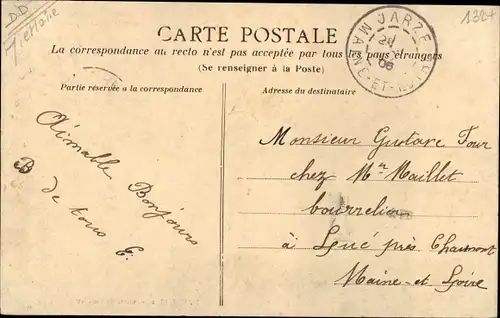 D.D
1324
CARTE POSTALE
La correspondance au recto n'est pas acceptée par tous les pays étrangers
(Se renseigner à la Poste)
JARZÉ
24
06
MAINE-ET-LOIRE
Partie réservée à la correspondance
Adresse du destinataire
Aimable Bonjours
B de tous E.
Monsieur Gustave Four
chez Mr Maillet
bourrelier
à Lué près Chaumont
Maine-et-Loire